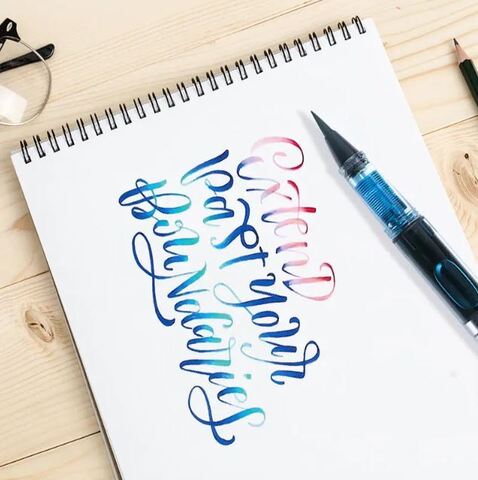 Extend
past your
Boundaries